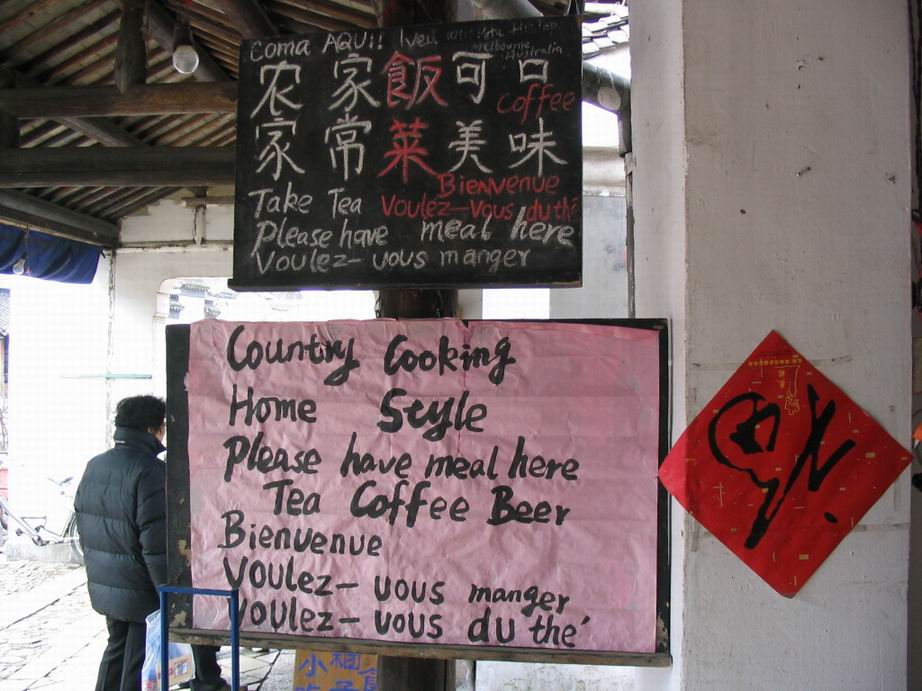 Coma AQUi!
Melbourne
Australia
农家飯可口
Coffee
家常菜美味
Bienvenue
Take Tea Voulez-Vous du thé
Please have meal here
Voulez-vous manger
Country Cooking
Home Style
Please have meal here
Tea Coffee Beer
Bienvenue
Voulez-vous manger
Voulez-vous du thé
小